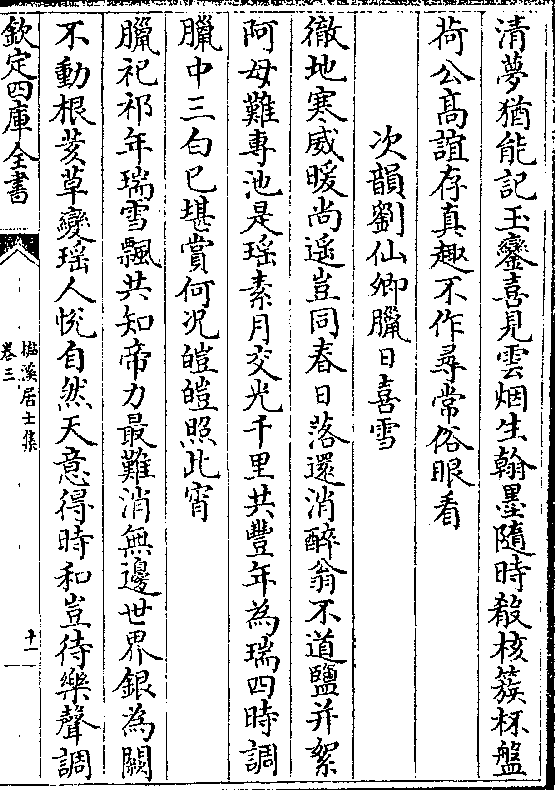 清夢猶能記玉鑾喜見雲烟生翰墨隨時殽核簇杯盤
荷公髙誼存真趣不作尋常俗眼看
次韻劉仙卿臘日喜雪
徹地寒威暖尚遥豈同春日落還消醉翁不道鹽并絮
阿母難專池是瑶素月交光千里共豐年為瑞四時調
臘中三白已堪賞何况皚皚照此宵
臘祀祁年瑞雪飄共知帝力最難消無邊世界銀為闕
不動根荄草變瑶人悦自然天意得時和豈待樂聲調
欽定四庫全書
樵溪居士集
卷三
十一